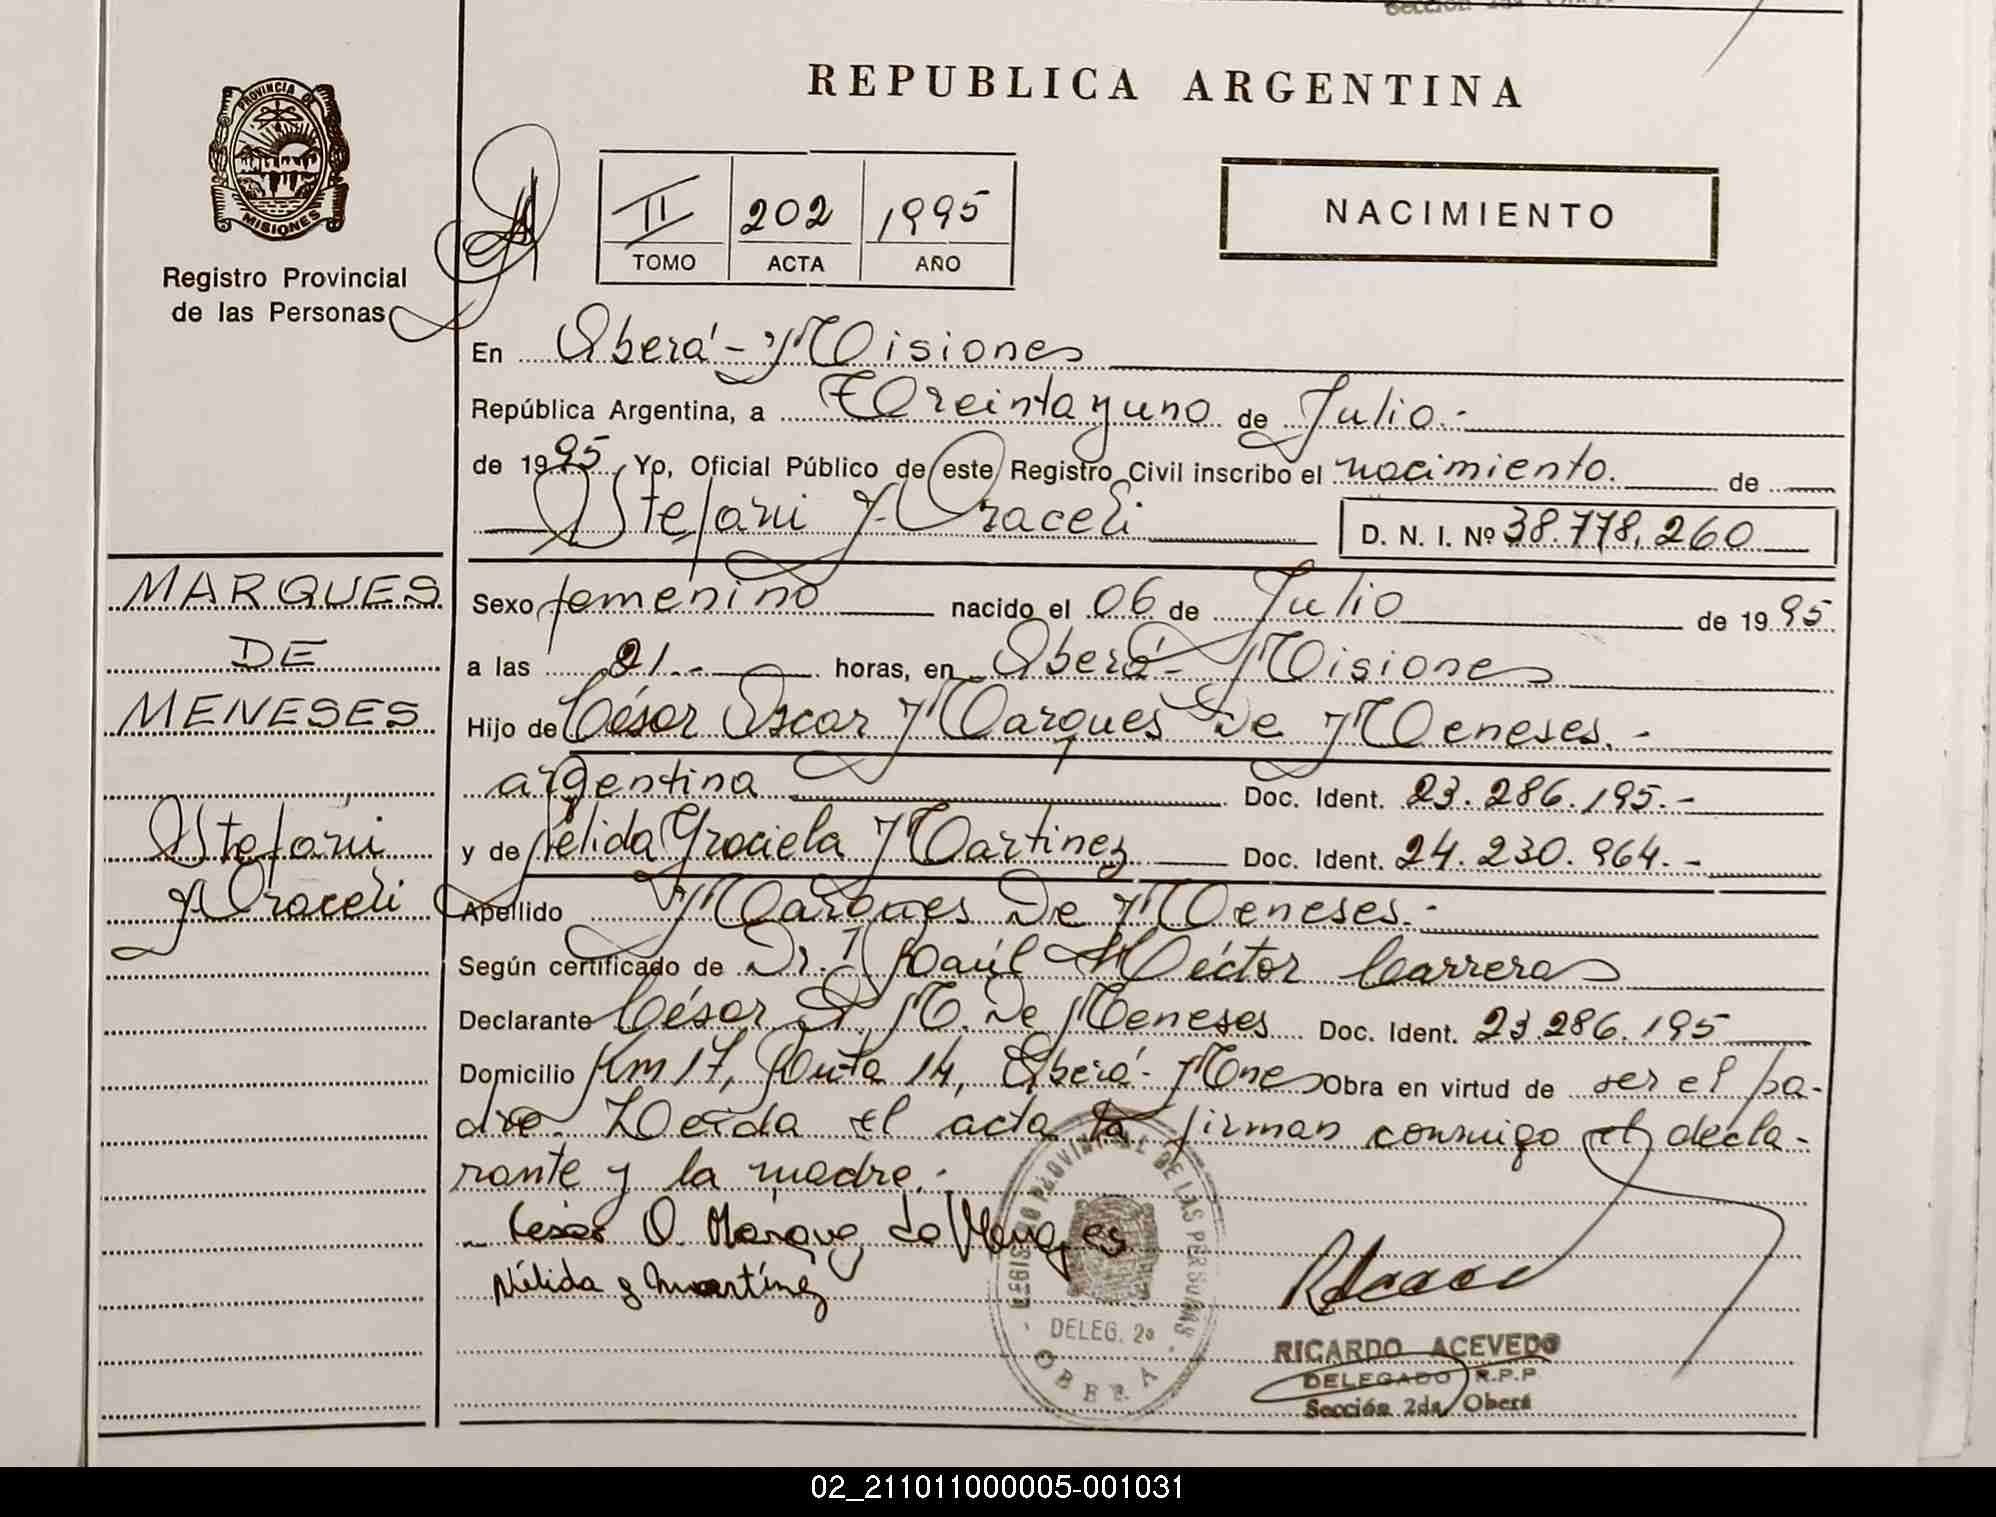 REPUBLICA ARGENTINA
PROVINCIA DE
MISIONES
Registro Provincial
de las Personas
II 202 1995
TOMO ACTA AÑO
NACIMIENTO
En Oberá - Misiones
República Argentina, a Treinta y uno de Julio.-
de 1995 Yo, Oficial Público de este Registro Civil inscribo el nacimiento. de
Stefani Araceli
D. N. I. Nº 38.778.260
MARQUES
DE
MENESES
Stefani
Araceli
Sexo femenino nacido el 06 de Julio de 1995
a las 21.- horas, en Oberá - Misiones
Hijo de César Oscar Marques De Meneses.-
argentina Doc. Ident. 23.286.195.-
y de Nélida Graciela Martinez Doc. Ident. 24.230.964.-
Apellido Marques De Meneses.-
Según certificado de Dr. Raúl Héctor Carreras
Declarante César O. M. De Meneses Doc. Ident. 23.286.195
Domicilio Km 17, Ruta 14, Oberá - Mnes Obra en virtud de ser el pa-
dre. Leída el acta la firman conmigo el decla-
rante y la madre.-
Cesar O. Marque de Meneses
Nélida G Martínez
REGISTRO PROVINCIAL DE LAS PERSONAS
DELEG. 2a
OBERA
RICARDO ACEVEDO
DELEGADO R.P.P
Sección 2da Oberá
02_211011000005-001031